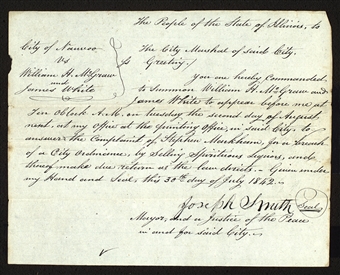 The People of the State of Illinois, to
City of Nauvoo
Vs
William H. McGraw
and
James White
The City Marshal of said City.
Greeting;
You are hereby Commanded
to Summon William H. McGraw and
James White to appear before me at
Ten oClock A.M. on tuesday the second day of August
next, at my Office at the printing Office, in said City, to
answer the Complaint of Stephen Markham, for a breach
of a City Ordinance, by Selling Spiritous Liquors, and
thereof make due return as the law directs.— Given under
my Hand and Seal, this 30th day of July 1842.—
Joseph Smith Seal
Mayor, and a Justice of the Peace
in and for said City.—